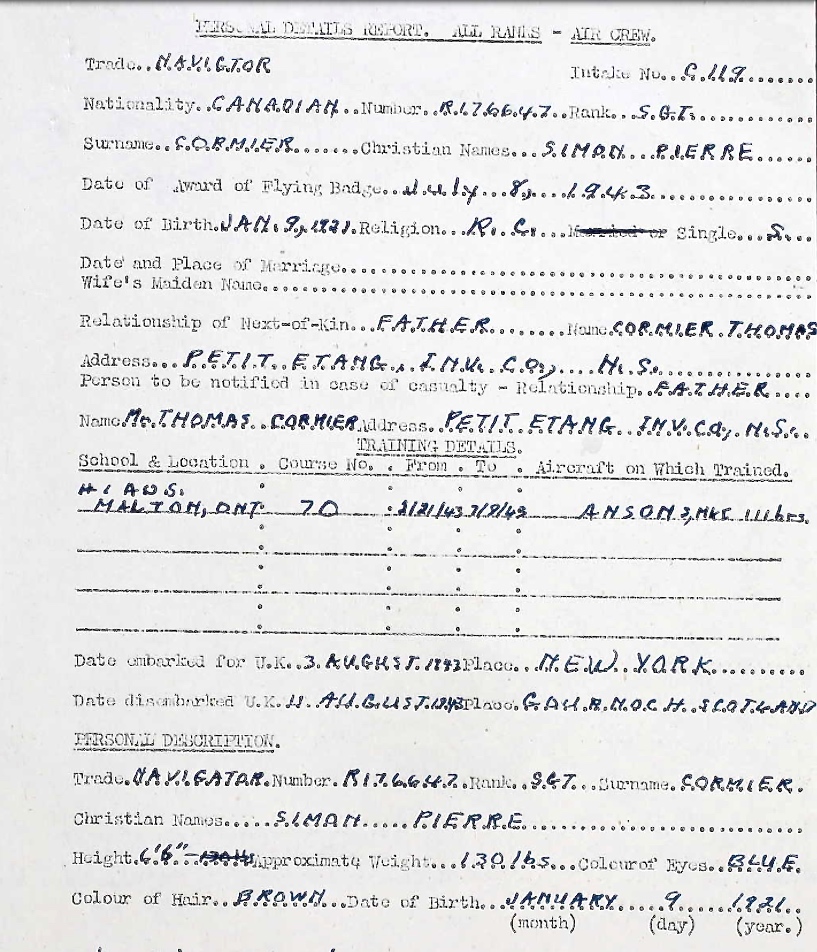 PERSONAL DETAILS REPORT. ALL RANKS - AIR CREW.
Trade..NAVIGTOR Intake No..C.119........
Nationality..CANADIAN..Number..R.176647..Rank...S.G.T.............
Surname..CORMIER.......Christian Names...SIMON PIERRE
Date of Award of Flying Badge...July...8,...1943...............
Date of Birth.JAN.9,1921.Religion...R.C....Married or Single...S...
Date and Place of Marriage.............................................
Wife's Maiden Name.............................................
Relationship of Next-of-Kin...FATHER........Name.CORMIER THOMAS
Address...PETIT ETANG., INV. CO., N.S...............
Person to be notified in case of casualty - Relationship..FATHER....
Name.Mr.THOMAS CORMIER.Address..PETIT ETANG INV.CO, N.S...
TRAINING DETAILS.
School & Location . Course No. . From . To . Aircraft on Which Trained.
MALTON, ONT. 70 ANSON
Date embarked for U.K..3.AUGUST.1943.Place..NEW YORK..........
Date disembarked U.K. 11.AUGUST.1943.Place.GAURNOCH.SCOTLAND
PERSONAL DESCRIPTION.
Trade.NAVIGATOR.Number.R176647.Rank..SGT...Surname.CORMIER.
Christian Names.....SIMON.....PIERRE............................
Height. Approximate Weight...130 lbs...Colour of Eyes..BLUE.
Colour of Hair..BROWN..Date of Birth...JANUARY.....9......1921..
(month) (day) (year.)